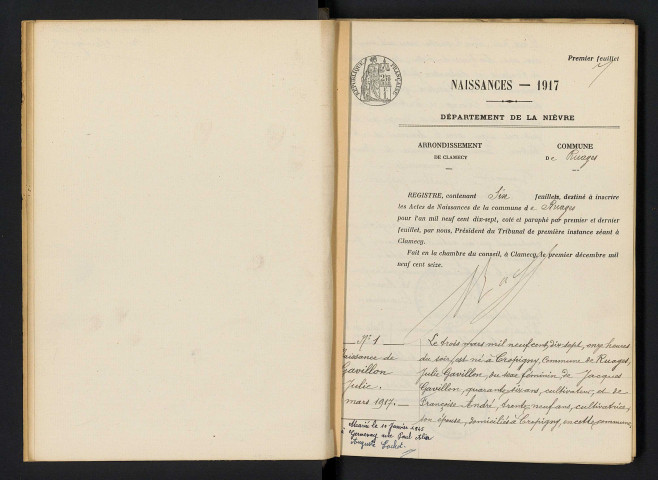 Premier feuillet
RÉPUBLIQUE FRANÇAISE
NAISSANCES — 1917
DÉPARTEMENT DE LA NIÈVRE
ARRONDISSEMENT
DE CLAMECY
COMMUNE
De Ruages
REGISTRE, contenant Six feuillets, destiné à inscrire
les Actes de Naissances de la commune de Ruages
pour l'an mil neuf cent dix-sept, coté et paraphé par premier et dernier
feuillet, par nous, Président du Tribunal de première instance séant à
Clamecy.
Fait en la chambre du conseil, à Clamecy, le premier décembre mil
neuf cent seize.
N° 1
Naissance de
Gavillon
Julie.
mars 1917.
Le trois mars mil neuf cent dix-sept, onze heures
du soir, est né à Cropigny, Commune de Ruages,
Julie Gavillon, du sexe féminin de Jacques
Gavillon, quarante-six ans, cultivateur, et de
Françoise André, trente-neuf ans, cultivatrice,
son épouse, domiciliés à Cropigny, en cette commune,
Marié le 10 Janvier 1945
à Germenay avec Paul